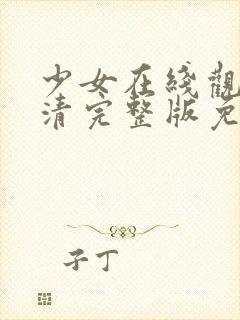 少女在线觀
清完整版免
子丁